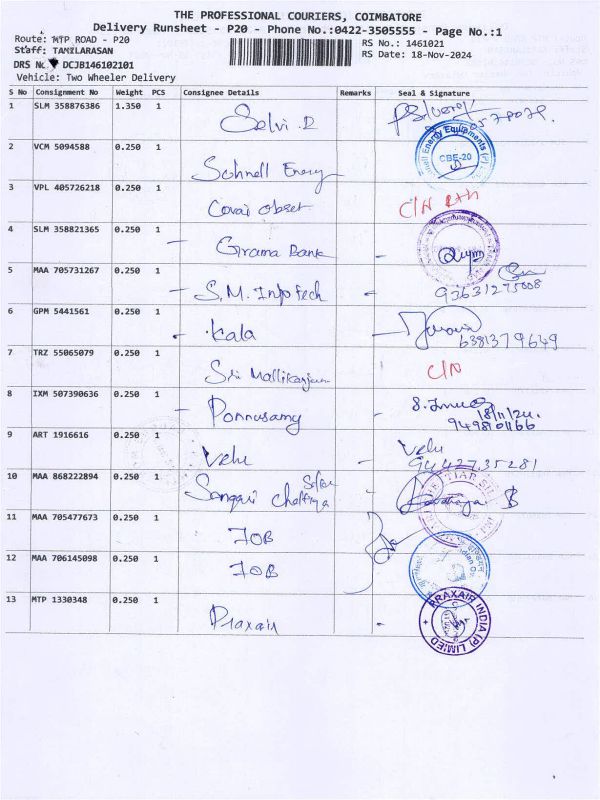 THE PROFESSIONAL COURIERS, COIMBATORE
Delivery Runsheet - P20 - Phone No.:0422-3505555 - Page No.:1
Route: MTP ROAD - P20
RS No.: 1461021
Staff: TAMILARASAN
RS Date: 18-Nov-2024
DRS No. DCJB146102101
Vehicle: Two Wheeler Delivery
S No Consignment No Weight PCS Consignee Details Remarks Seal & Signature
1 SLM 358876386 1.350 1 Selvi.R
2 VCM 5094588 0.250 1 Schnell Energy CBE-20
3 VPL 405726218 0.250 1 Covai C/N
4 SLM 358821365 0.250 1 - Grama Bank -
5 MAA 705731267 0.250 1 - S.M. Infotech - 93631275008
6 GPM 5441561 0.250 1 - Kala - 6381379649
7 TRZ 55065079 0.250 1 Sri Mallikarjun C/N
8 IXM 507390636 0.250 1 - Ponnusamy - 18/11/24.
9 ART 1916616 0.250 1 Velu - Velu
9442735281
10 MAA 868222894 0.250 1 -
11 MAA 705477673 0.250 1 IOB
12 MAA 706145098 0.250 1 IOB
13 MTP 1330348 0.250 1 Praxair - PRAXAIR INDIA (P) LIMITED